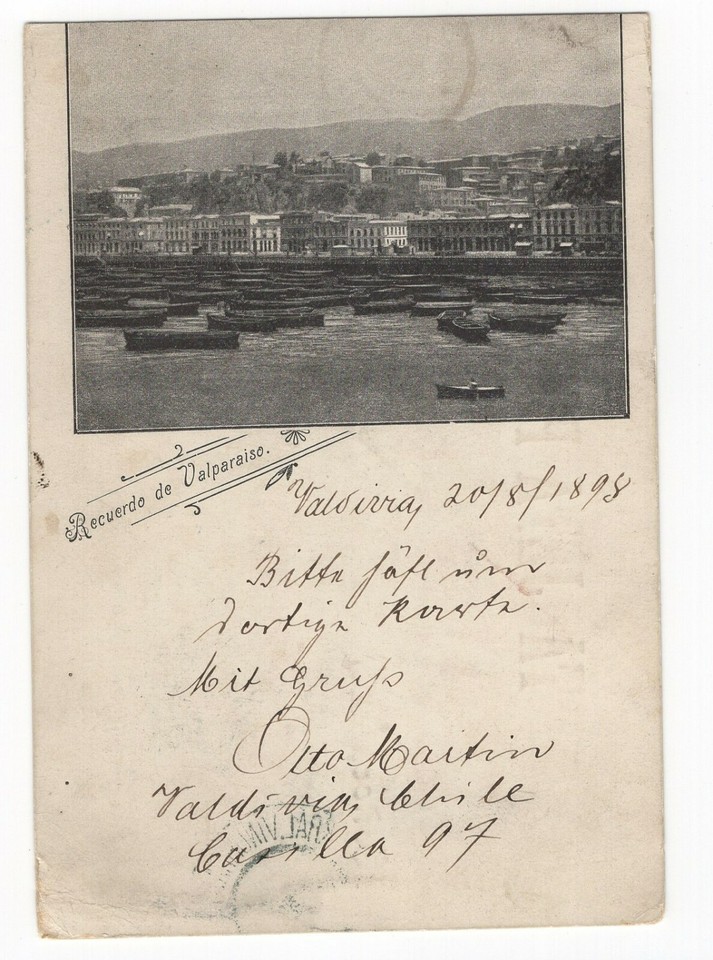 Recuerdo de Valparaiso.
Valdivia, 20/8/1898
Bitte höfl um
dortige Karte.
Mit Gruß
Otto Martin
Valdivia, Chile
Casilla 97